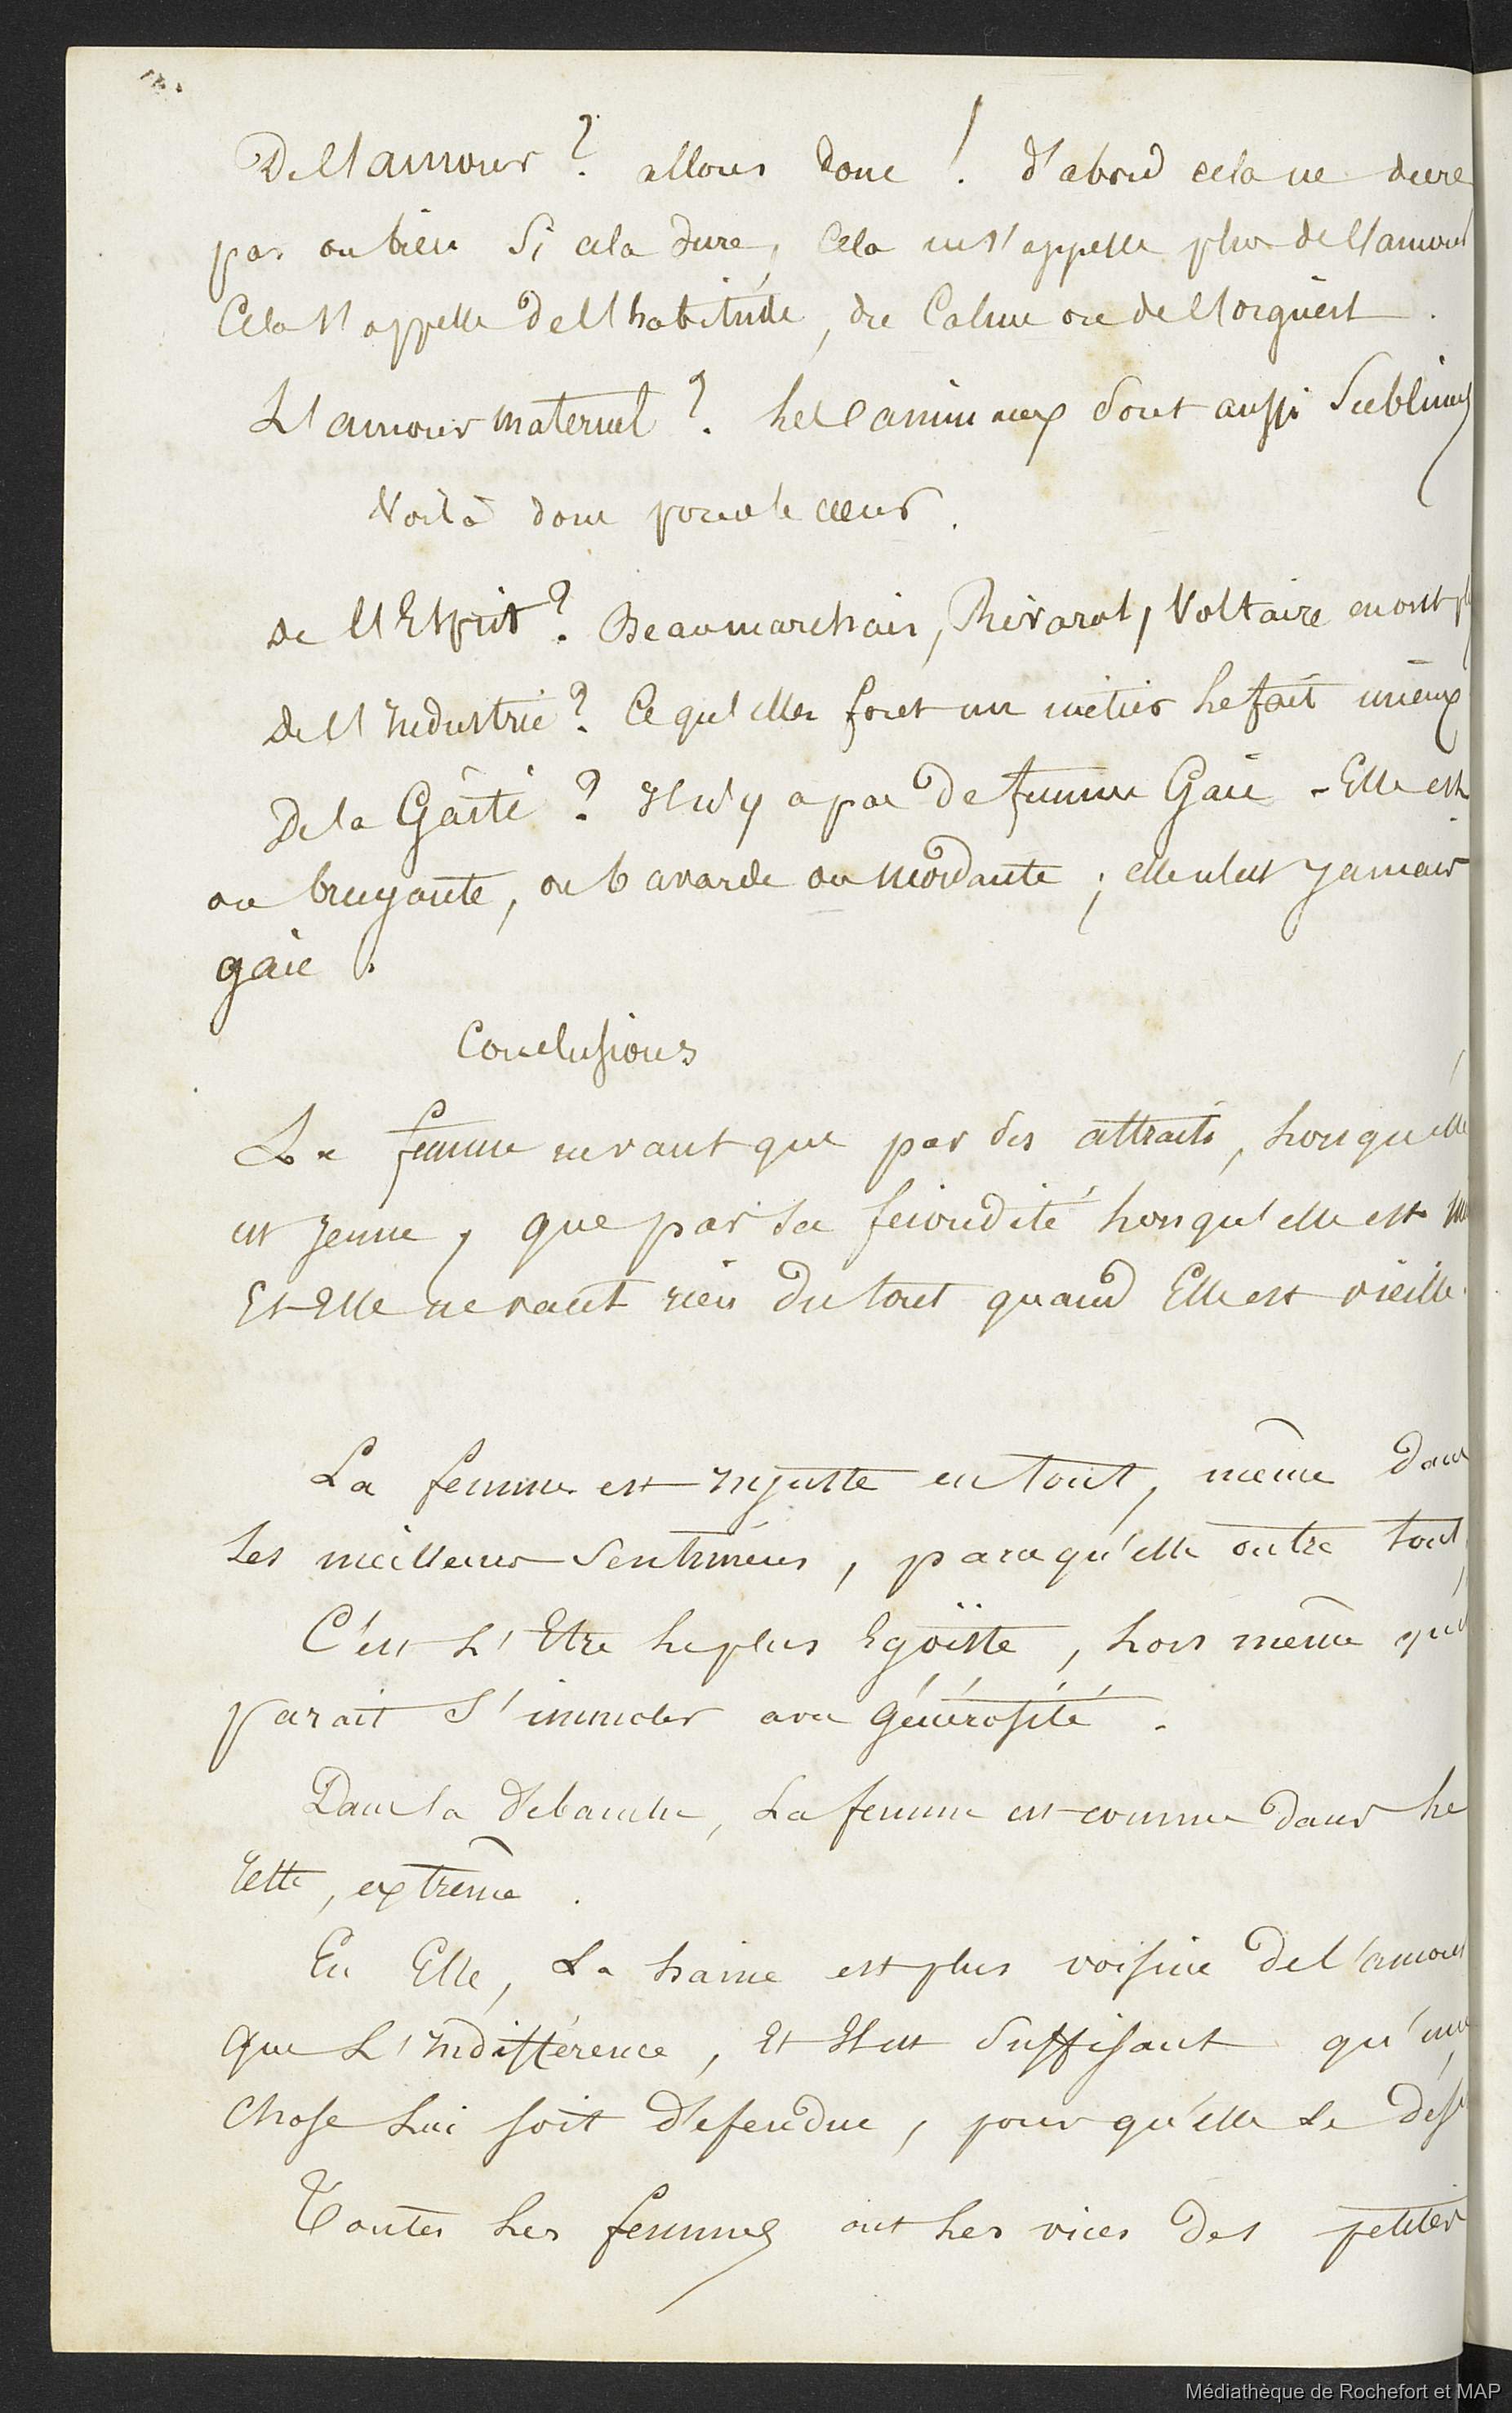 De l'amour ? allons donc ! d'abord cela ne dure
pas ou bien si cela dure, cela ne s'appelle plus de l'amour
Cela s'appelle de l'habitude, du Calme ou de l'orgueil .
L'amour maternel ? les animaux sont aussi Sublimes
Voilà donc pour le cœur .
de l'Esprit ? Beaumarchais, Rivarol, Voltaire en ont
De l'Industrie ? Ce qu'elles font un métier le fait mieux
De la Gâité ? Il n'y a pas de femme Gaie - Elle est
ou bruyante, ou bavarde ou mordante ; elle n'est Jamais
gaie .
Conclusions
La femme ne vaut que par ses attraits, lorsqu'elle
est Jeune, que par sa fécondité lorsqu'elle est
Et Elle ne vaut rien du tout quand Elle est vieille.
La femme est Injuste en tout, même dans
les meilleurs Sentimens, parce qu'elle outre tout,
C'est L'Etre le plus Egoïste, lors même
parait S'immoler avec Générosité .
Dans la débauche, La femme est comme dans le
reste, extrême .
En Elle, La haine est plus voisine de l'amour
que L'Indifférence, Et Il est Suffisant qu'une
Chose Lui soit défendue, pour qu'elle la
Toutes les femmes ont les vices des petites
Médiathèque de Rochefort et MAP